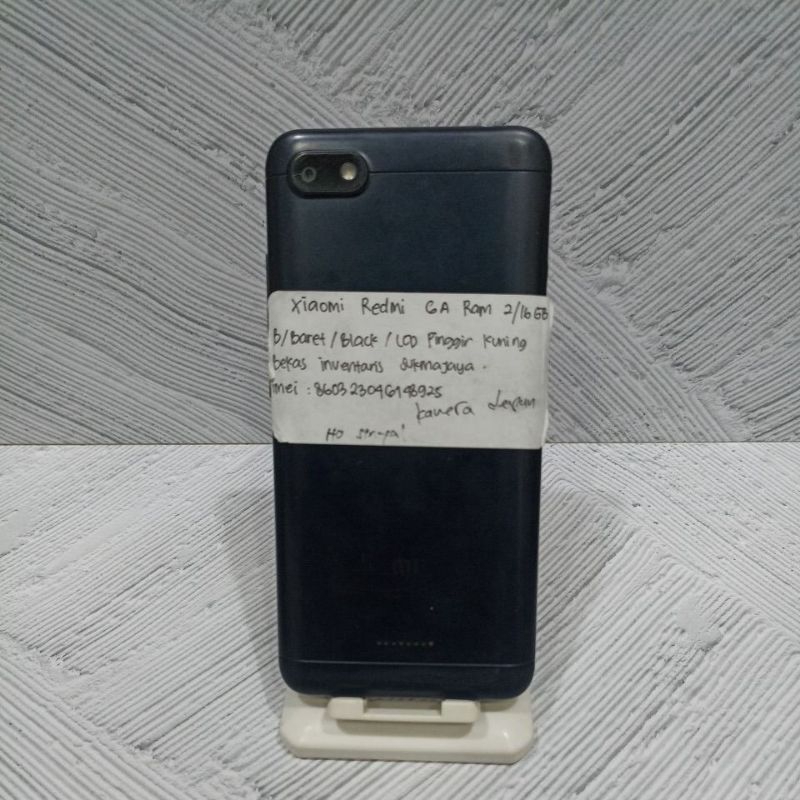 Xiaomi Redmi 6A Ram 2/16 GB
B/Baret/Black/LCD Pinggir Kuning
Bekas inventaris sukmajaya.
Imei : 860323046148925
kamera depan
HO
mi